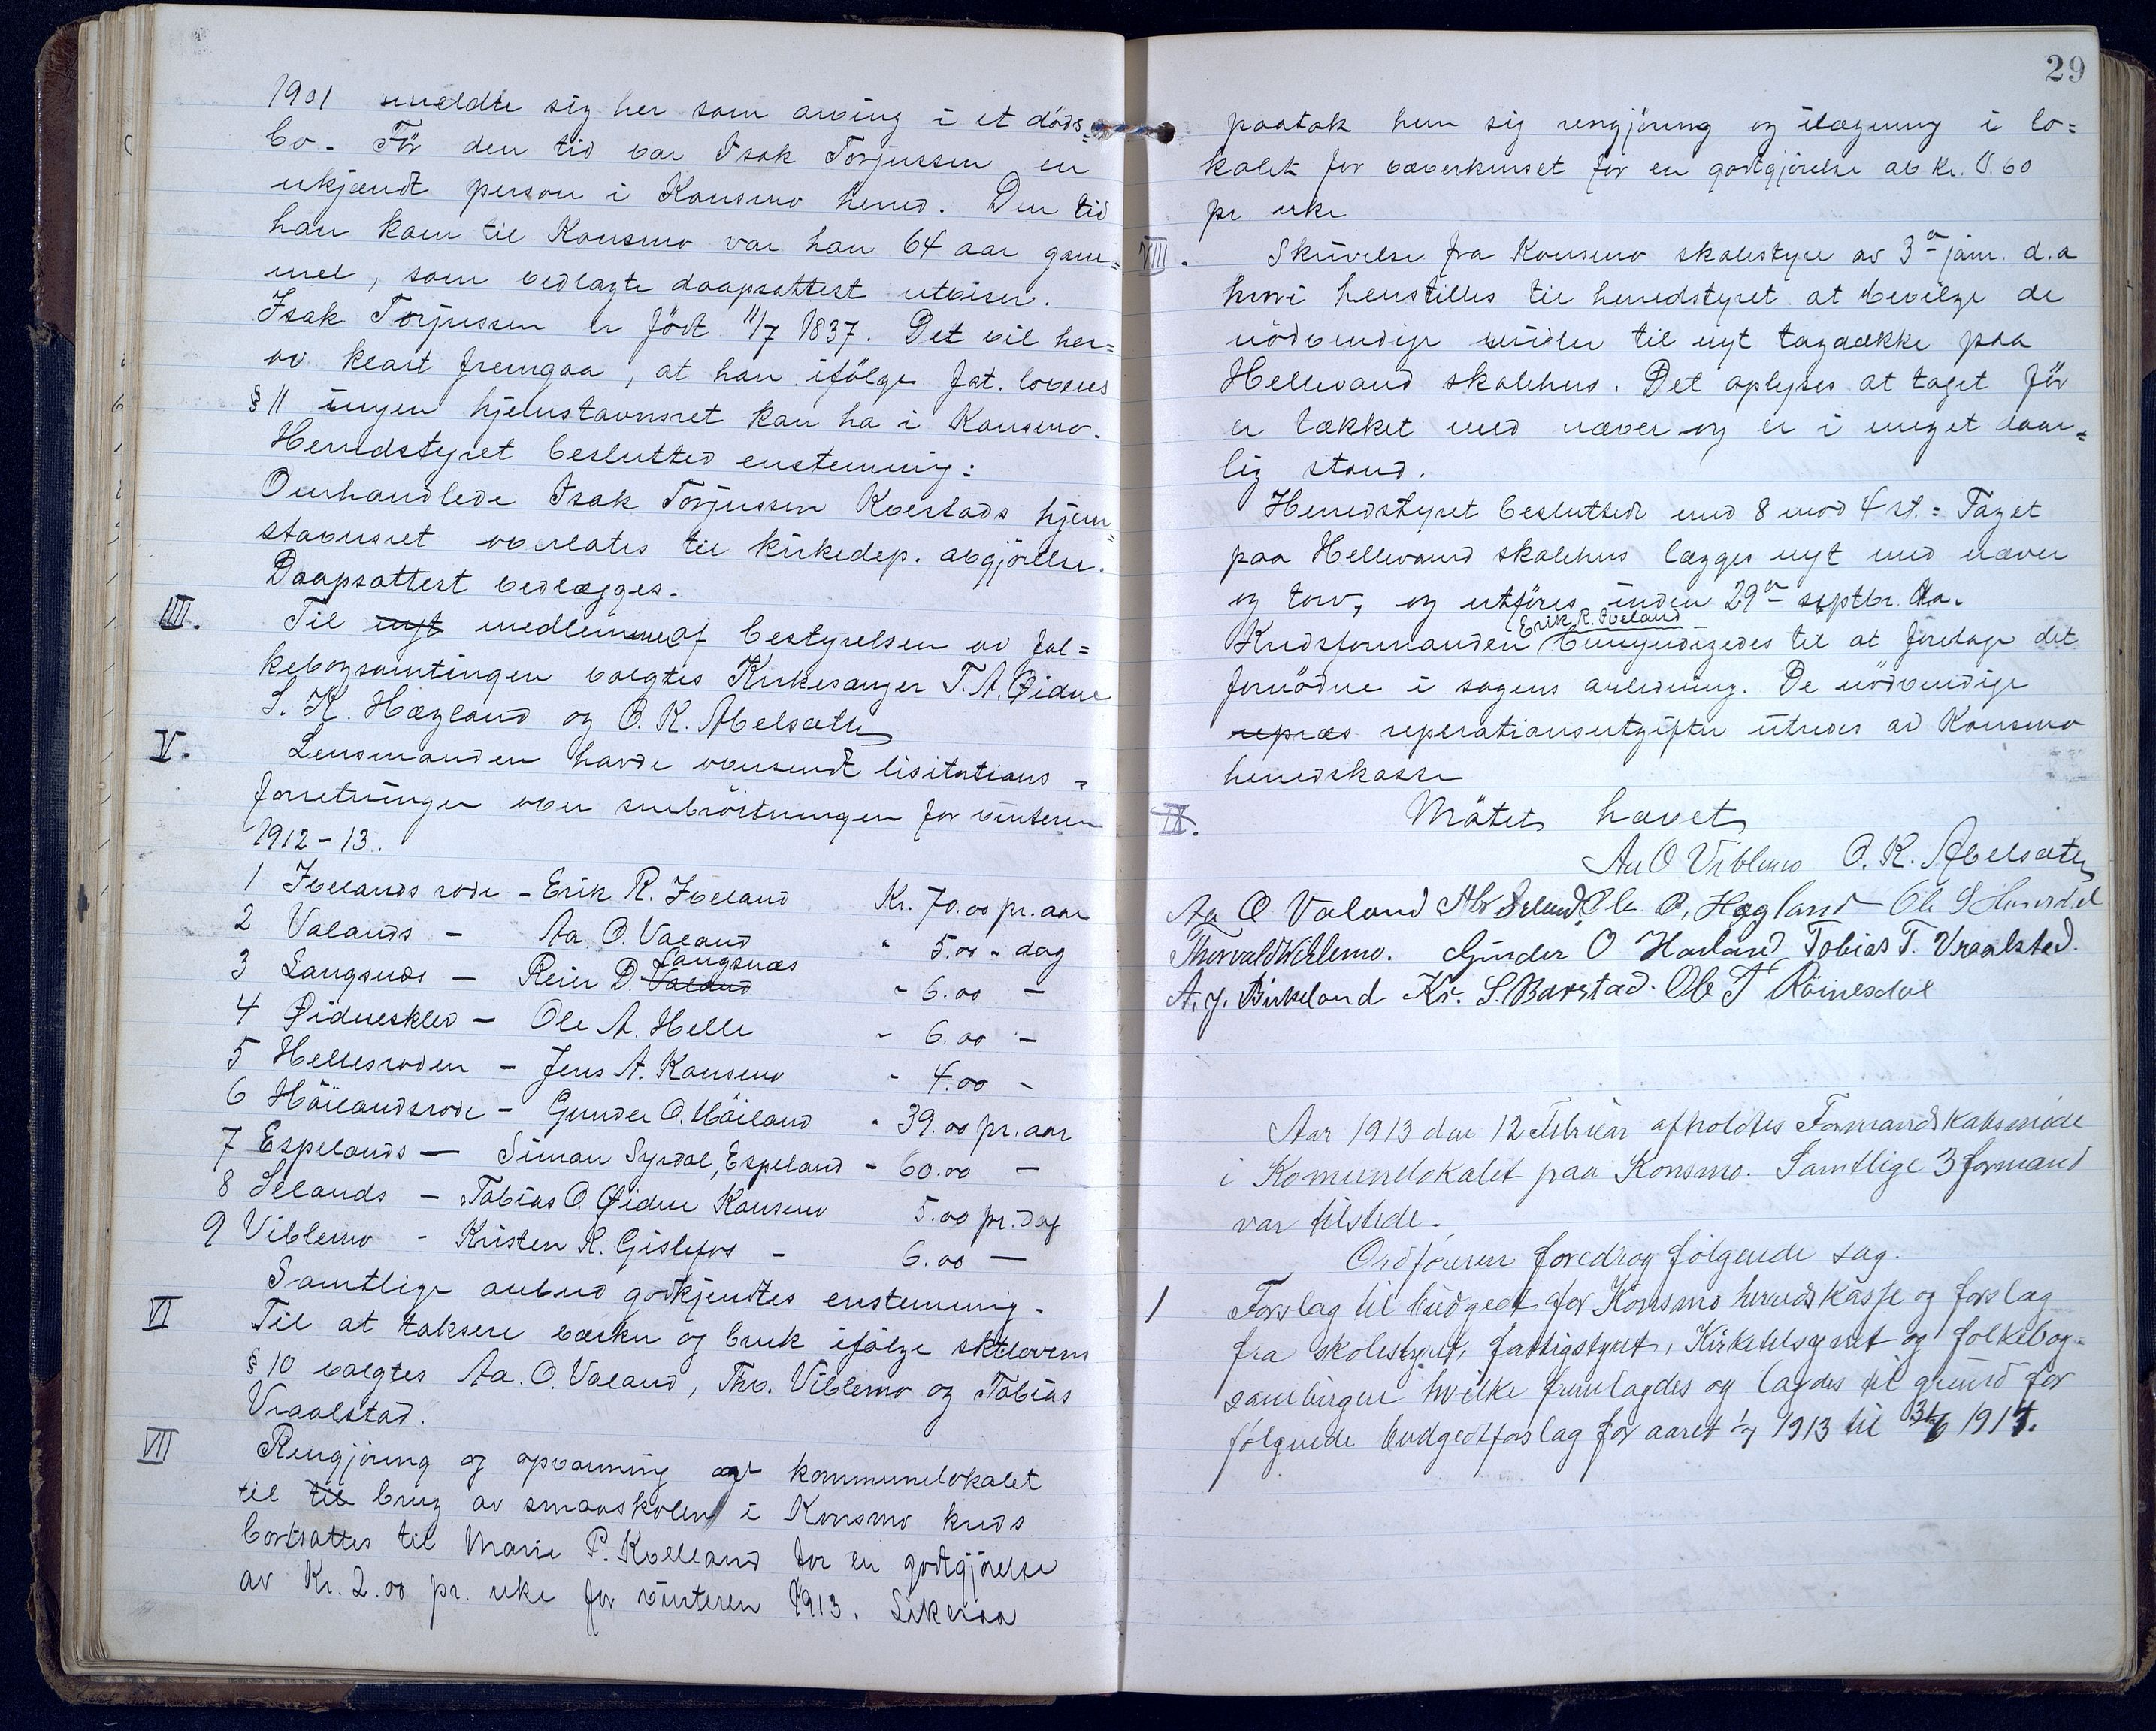 1901 meldte sig her som arving i et döds=
bo. Før den tid var Isak Torjussen en
ukjendt person i Konsmo herred. Den tid
han kom til Konsmo var han 64 aar gam=
mel, som vedlagte daapsattest utviser.
Isak Torjussen er födt 11/7 1837. Det vil her=
av klart fremgaa, at han ifölge fat. lovens
§ 11 ingen hjemstavnsret kan ha i Konsmo.
Herredstyret beslutted enstemmig:
Omhandlede Isak Torjussen Kvelstads hjem=
stavnsret overlates til kirkedep. avgjörelse.
Daapsattest vedlægges.
IIII. Til nyt medlemme af bestyrelsen av fol=
kebogsamlingen valgtes Kirkesanger T. A. Øidne
S. K. Hægland og O. K. Abelsæth
V. Lensmanden havde oversendt lisitations=
forretninger over snebröitningen for vinteren
1912-13.
1 Ivelands rode - Erik R. Iveland Kr. 70.00 pr. aar
2 Valands - Aa. O. Valand " 5.00 - dag
Langsnæs
3 Langsnæs - Reier D. Valand - 6.00 -
4 Øidnesklev - Ole A. Helle - 6.00 -
5 Hellesroden - Jens A. Konsmo - 4.00 -
6 Höilandsrode - Gunder O. Höiland - 39.00 pr. aar
7 Espelands - Simon Syrdal, Espeland - 60.00 -
8 Selands - Tobias O. Øidne Konsmo 5.00 pr. dag
9 Viblemo - Kristen K. Gislefos - 6.00 -
Samtlige anbud godkjendtes enstemmig.
VI Til at taksere værker og bruk ifölge sktlovens
§ 10 valgtes Aa. O. Valand, Tho. Viblemo og Tobias
Vraalstad.
VII Rengjöring og opvarming av kommunelokalet
til til brug av smaaskolen i Konsmo kreds
bortsattes til Marie P. Kvelland for en godtgjörelse
av Kr. 2.00 pr. uke for vinteren 1913. Likesaa
29
paatok hun sig rengjöring og ilægning i lo=
kalet for væverkurset for en godtgjörelse av kr. 0.60
pr. uke
VIII. Skrivelse fra Konsmo skolestyre av 3die jan. d.a
hvori henstilles til herredstyret at bevilge de
nödvendige midler til nyt tagdække paa
Hellevand skolehus. Det oplyses at taget för
er tækket med næver og er i meget daar=
lig stand.
Herredstyret besluttede med 8 mod 4 st.: Taget
paa Hellevand skolehus lægges nyt med næver
og torv, og utföres inden 29de septbr. d.a.
Erik R. Iveland
Kredsformanden bemyndigedes til at foretage det
fornödne i sagens anledning. De nödvendige
repræs reperationsutgifter utredes av Konsmo
herredskasse
IX. Mötet hævet
Aa O Viblemo O. K. Abelsæth
Aa O Valand Ole O. Hægland Ole S
Thorvald Viblemo. Gunder O Høiland Tobias T. Vraalstad.
A. J. Birkeland Kr. S. Barstad. Ole T Röinesdal
Aar 1913 den 12 Februar afholdtes Formandskabsmöde
i Komunelokalet paa Konsmo. Samtlige 3 formænd
var tilstede.
Ordföreren foredrog fölgende sag.
1 Forslag til budgedt for Konsmo herredskasse og forslag
fra skolestyret, fattigstyret, Kirketilsynet og folkebog-
samlingen hvilke fremlagdes og lagdes til grund for
fölgende budgedtforslag for aaret 1/7 1913 til 31/6 1914.